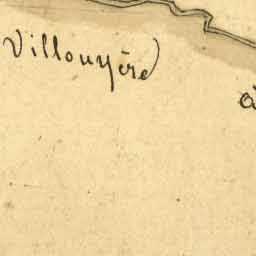 Villouyère
à